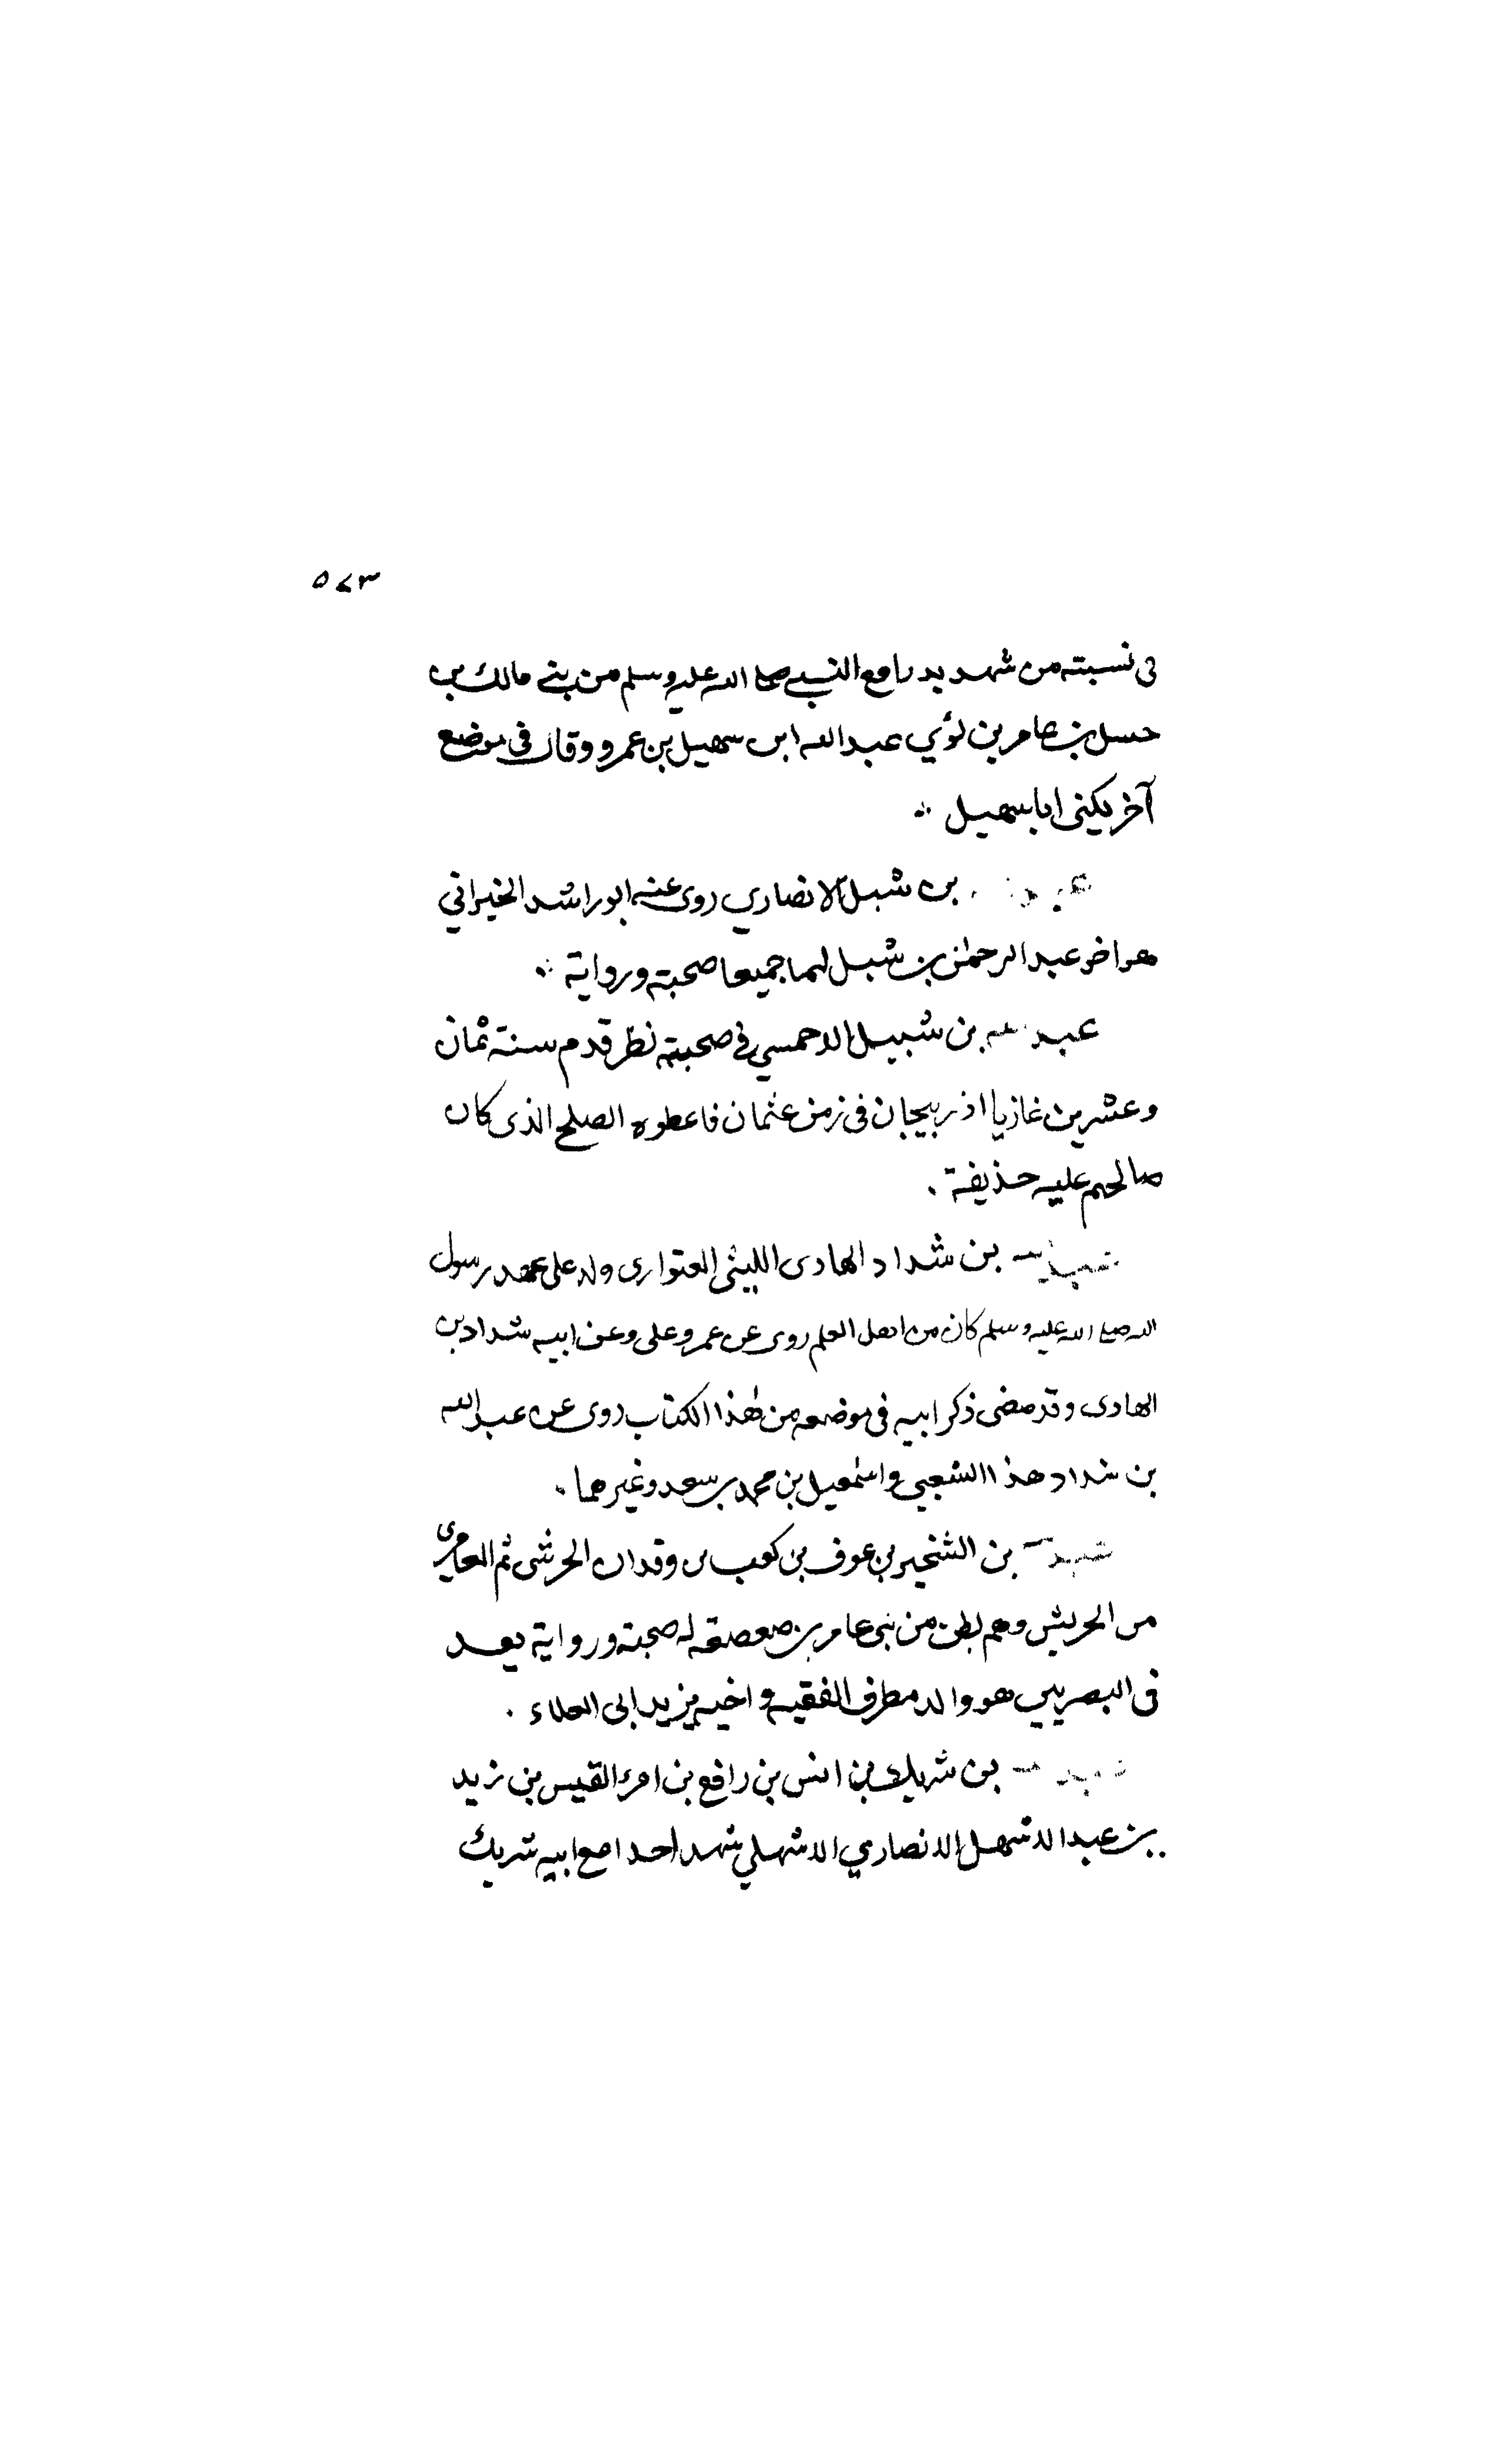 ٥٧٣
فى نسبته من شهد بدرا مع النبي صلى الله عليه وسلم من بني مالك بن
حسل بن عامر بن لؤي عبد الله ابن سهيل بن عمرو وقال في موضع
آخر يكنى ابا سهيل
بن شبل الانصاري روى عنه ابو راشد الخيراني
هو اخو عبد الرحمن بن شبل لهما جميعا صحبة ورواية
عبد الله بن شبيل الاحمسي في صحبته نظر قدم سنة ثمان
وعشرين غازيا اذربيجان فى زمن عثمان فاعطوه الصلح الذى كان
صالحهم عليه حذيفة .
بن شداد الهادى الليثى العتوارى ولد على عهد رسول
الله صلى الله عليه وسلم كان من اهل العلم روى عن عمر وعلى وعن ابيه شداد بن
الهادى وقد مضى ذكر ابيه فى موضعه من هذا الكتاب روى عن عبد الله
بن شداد هذا الشعبي واسمعيل بن محمد بن سعد وغيرهما .
بن الشخير بن عوف بن كعب بن وقدان الحرشى ثم العامرى
من الحريش وهم بطن من بنى عامر بن صعصعه له صحبة ورواية يعد
فى البصريين هو والد مطرف الفقيه واخيه يزيد ابى العلاء .
بن شريك بن انس بن رافع بن امرء القيس بن زيد
بن عبد الاشهل الانصاري الاشهلي شهد احدا مع ابيه شريك